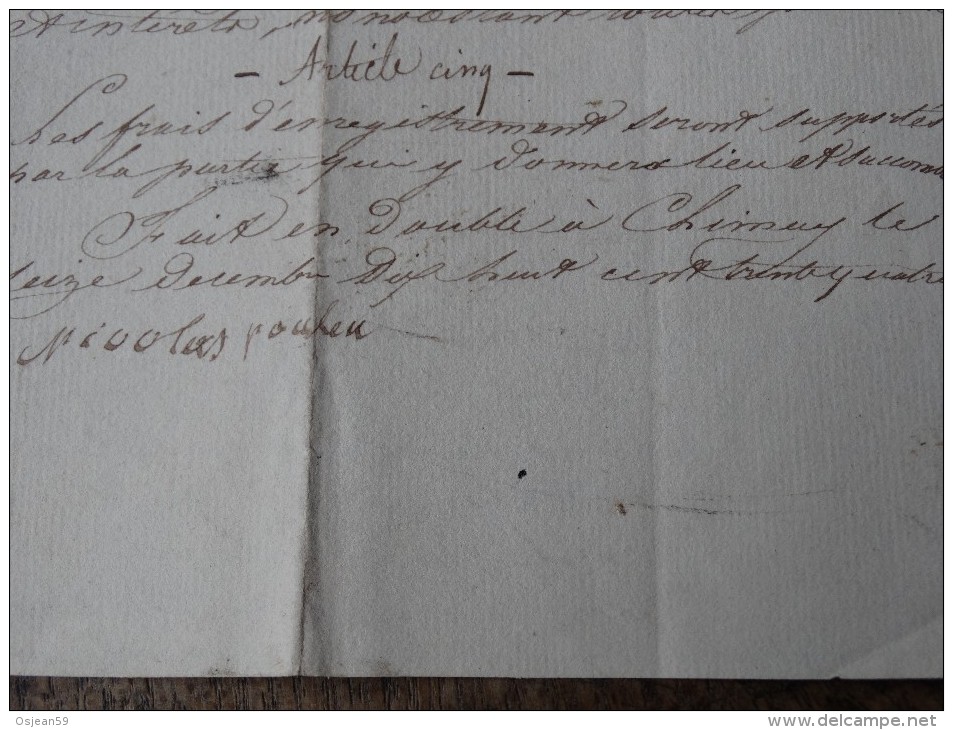 et interets, nonobstant
- Article cinq -
Les frais d'enregistrement seront supportés
par la partie qui y donnera lieu et succom
Fait en double à Chimay le
seize decembre Dix huit cent trente quatre
Nicolas pouleu
Osjean59
www.delcampe.net